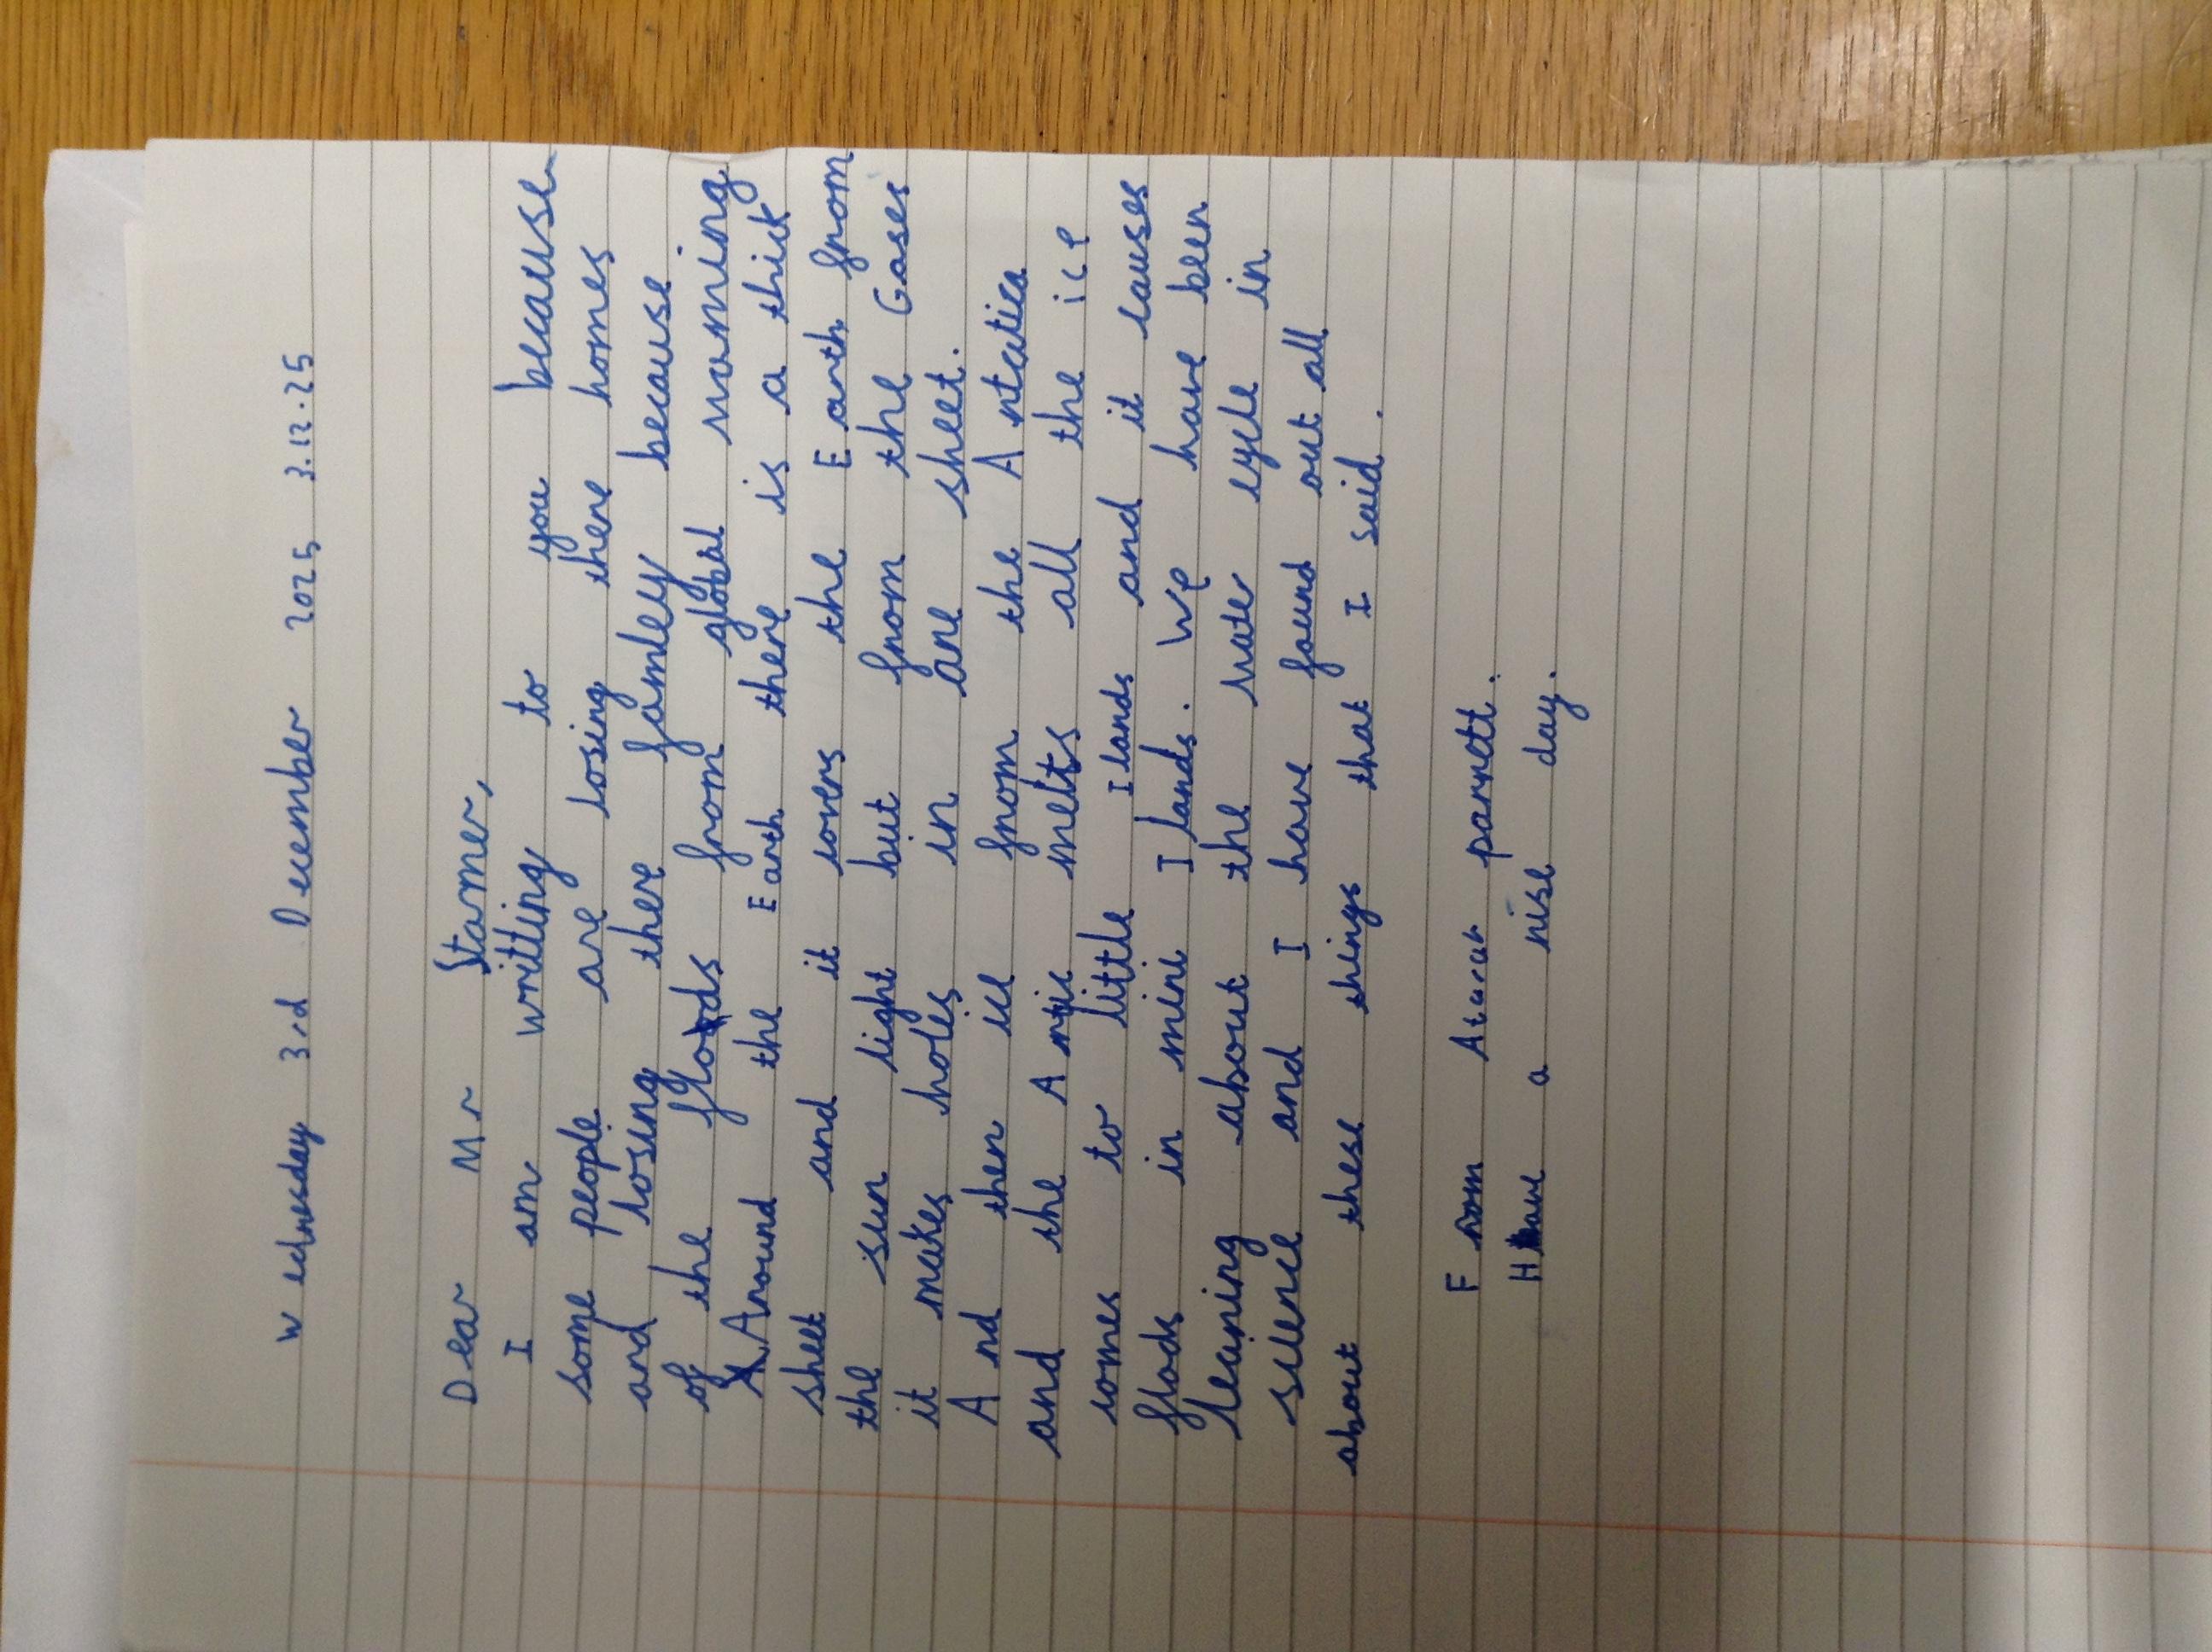 Wednesday 3rd December 2025 3.12.25
Dear Mr Starmer,
I am writting to you because
some people are losing there homes
and losing there famley because
of the floods from global warming
Around the Earth there is a thick
sheet and it covers the Earth from
the sun light but from the Gases
it makes holes in are sheet.
And then ice from the Antatica
and the Artic melts all the ice
comes to little Ilands and it causes
flods in mini Ilands. We have been
leaning about the water cycle in
science and I have found out all
about these things that I said.
From parrett.
Have a nise day.